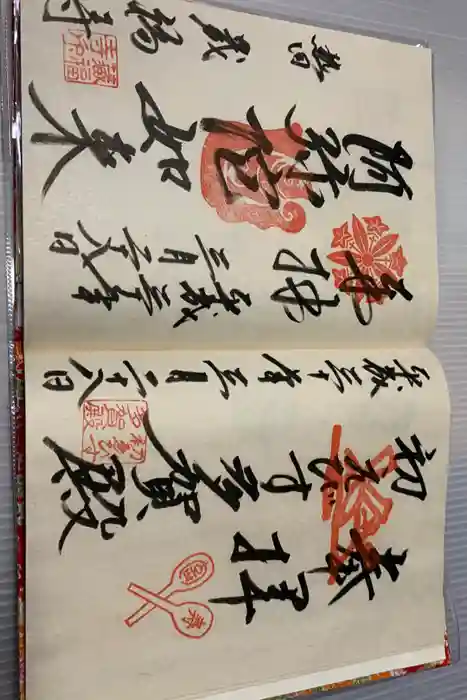 奉拝
初えびす 多賀殿
平成三十年三月二十八日
奉拝
平成三十年
三月二十八日
阿弥陀如来
熱田 蔵福寺